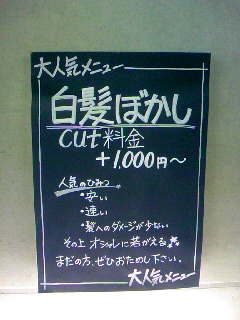 大人気メニュー
白髪ぼかし
cut料金
+1,000円〜
人気のひみつ
・安い
・速い
・髪へのダメージが少ない
その上 オシャレに若がえる
まだの方、ぜひおためし下さい。
大人気メニュー